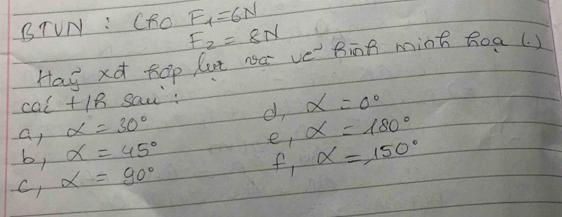 BTVN : Cho F₁=6N
F₂ = 8N
Hãy xđ hợp lực và vẽ hình minh hoạ (.)
các t/h sau :
a, α = 30°
b, α = 45°
c, α = 90°
d, α = 0°
e, α = 180°
f, α = 150°